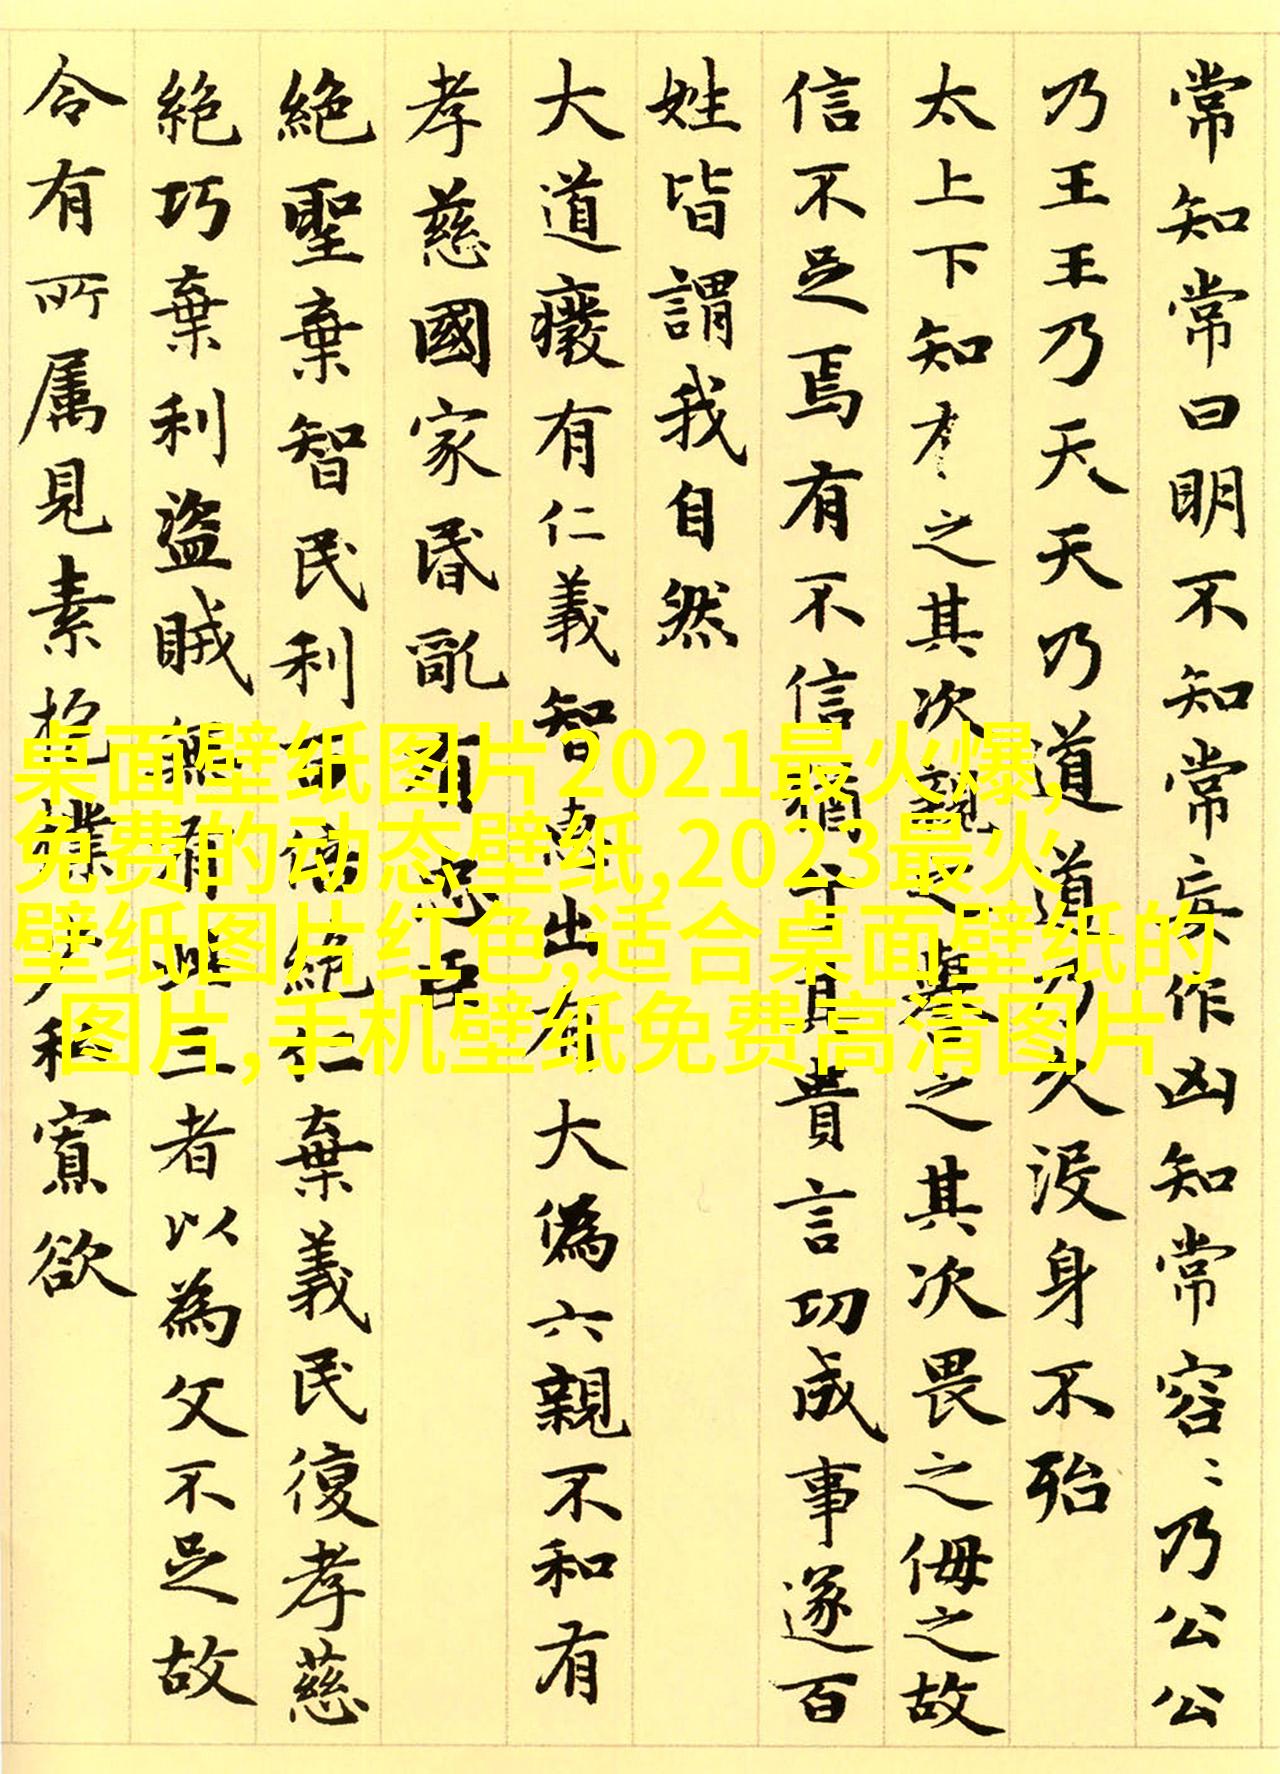 常知常曰明不知常妄作凶知常容〻乃公公
乃王王乃天天乃道道乃久沒身不殆
太上下知有之其次親之譽之其次畏之侮之故
信不足焉有不信猶其貴言功成事遂百
姓皆謂我自然
大道癈有仁義智惠出有大偽六親不和有
孝慈國家昬亂有忠臣
絕聖棄智民利百倍絕仁棄義民復孝慈
絕巧棄利盜賊無有此三者以為文不足故
令有所属見素抱樸少私寡欲
桌面壁纸图片2021最火爆,
免费的动态壁纸,2023最火
壁纸图片红色,适合桌面壁纸的
图片,手机壁纸免费高清图片